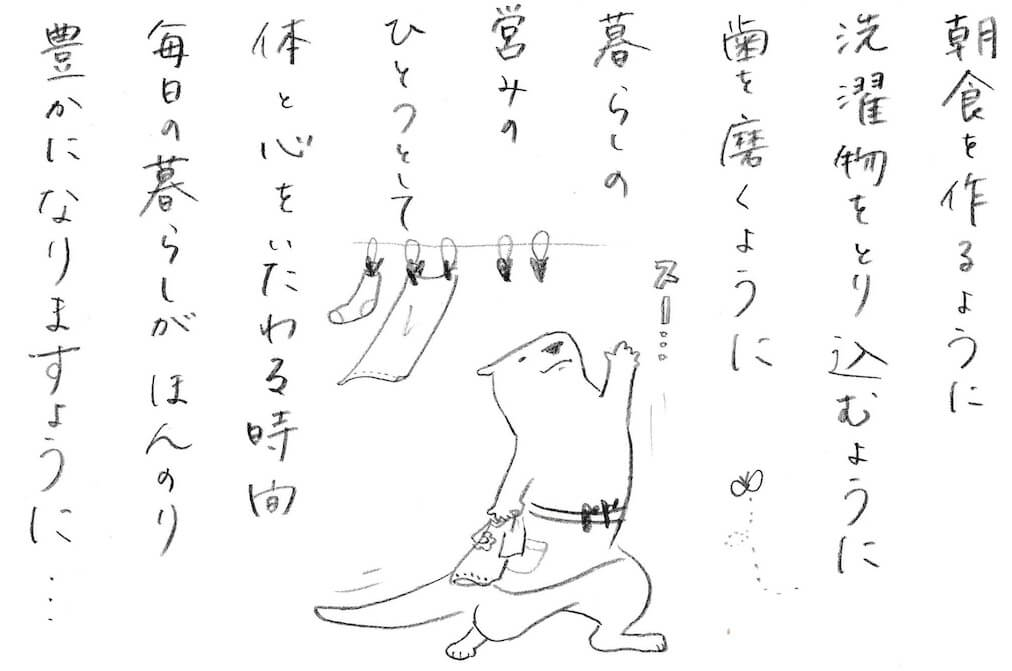 朝食を作るように
洗濯物をとり込むように
歯を磨くように
暮らしの
営みの
ひとつとして
体と心をいたわる時間
毎日の暮らしが ほんのり
豊かになりますように…
スー。。。